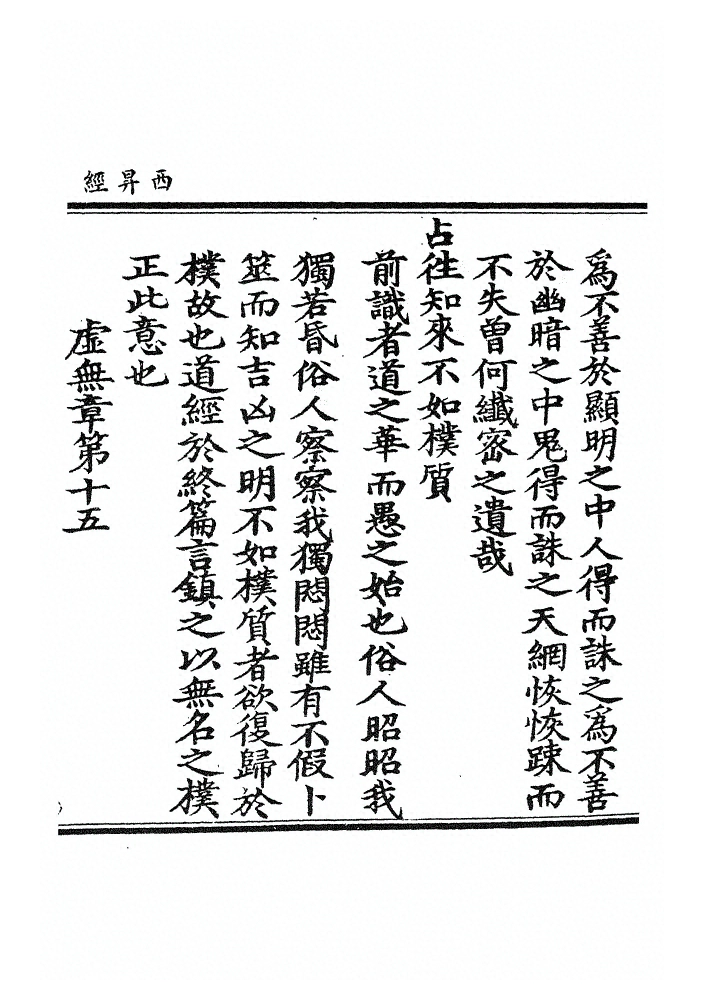 西昇經
爲不善於顯明之中人得而誅之爲不善
於幽暗之中鬼得而誅之天網恢恢踈而
不失曾何纖宻之遺哉
占往知來不如樸質
前識者道之華而愚之始也俗人昭昭我
獨若昏俗人察察我獨悶悶雖有不假卜
筮而知吉凶之明不如樸質者欲復歸於
樸故也道經於終篇言鎮之以無名之樸
正此意也
虛無章第十五